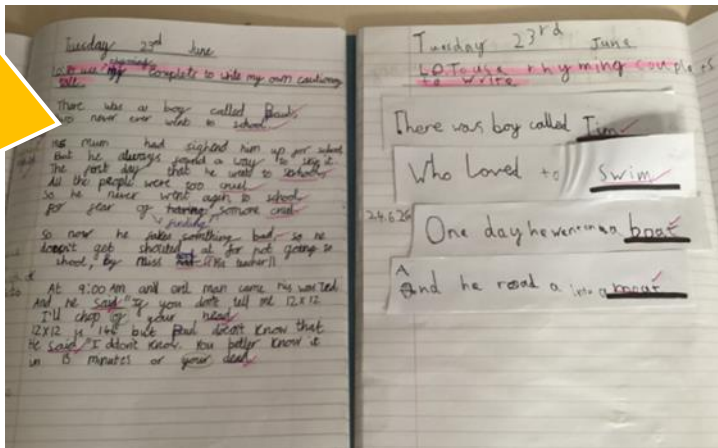 Tuesday 23rd June
rhyming
complete to write my own cautionary
tale.
There was a boy called Paul
who never ever went to school.
his mum had sighend him up for school
But he always found a way to skip it.
The first day that he went to school
All the people were too cruel
so he never went again to school
for fear of having somone cruel
finding
So now he fakes somthing bad, so he
doesn't get shouted at for not going to
shool, By miss (his teacher)
At 9:00 Am and old man came his was Ted
And he said "If you dont tell me 12x12
I'll chop of your head
12x12 is 146 but Paul doesn't know that
He said "I ddont know. You better know it
in 15 minutes or your dead
Tuesday 23rd June
L.O.To use rhyming couplets
to write
There was boy called Tim
Who Loved to swim
24.6.26
One day he went in a boat
And he road a into a moat